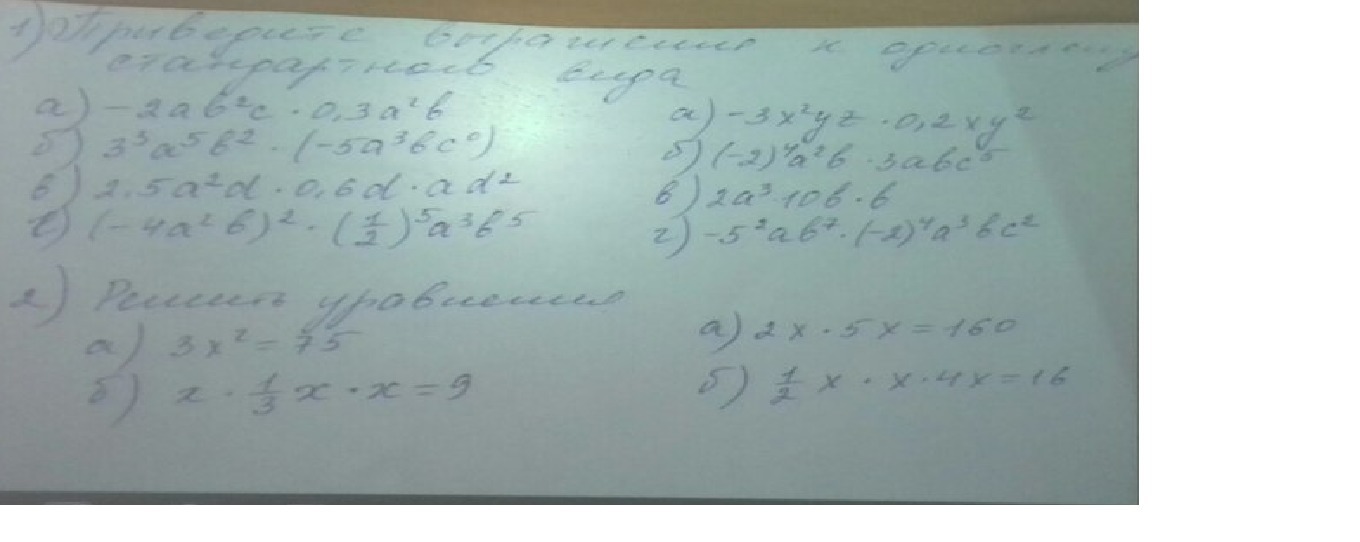 1) Приведите выражение к одночлену
стандартного вида
а) -2ab²c · 0,3a²b
б) 3³a⁵b² · (-5a³bc⁰)
в) 2.5a²d · 0,6d · ad²
г) (-4a²b)² · (1/2)⁵a³b⁵
а) -3x²yz · 0,2xy²
б) (-2)⁴a²b · 3abc⁵
в) 2a³ · 10b · b
г) -5²ab⁷ · (-2)⁴a³bc²
2) Решить уравнения
а) 3x² = 75
б) x · 1/3 x · x = 9
а) 2x · 5x = 160
б) 1/2 x · x · 4x = 16